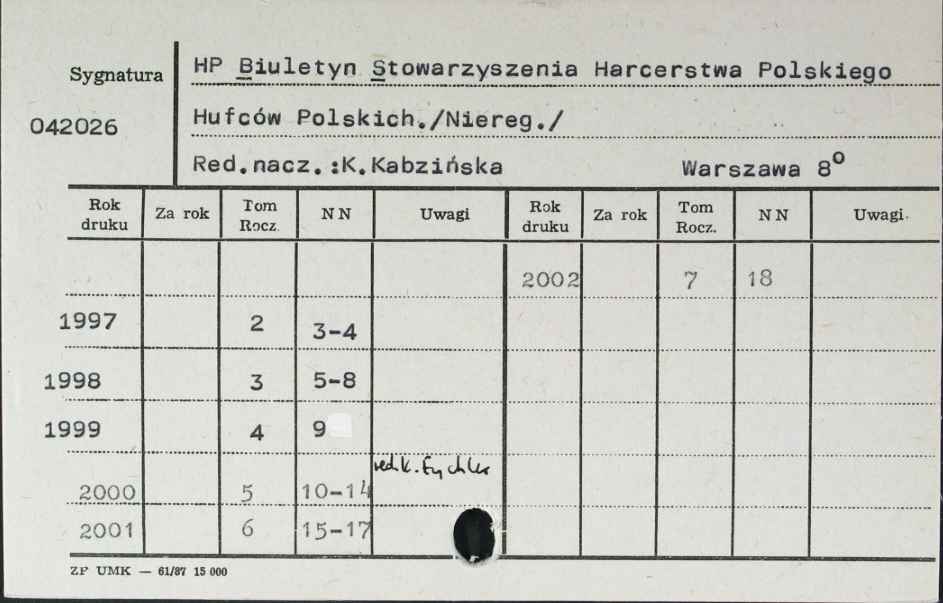 HP Biuletyn Stowarzyszenia Harcerstwa Polskiego
Sygnatura
042026
Hufców Polskich./Niereg./
Red.nacz.:K.Kabzińska Warszawa 8º
Rok druku Za rok Tom Rocz. NN Uwagi Rok druku Za rok Tom Rocz. NN Uwagi
2002 7 18
1997 2 3-4
1998 3 5-8
1999 4 9
red. K. Eychler
2000 5 10-14
2001 6 15-17
ZP UMK — 61/87 15 000